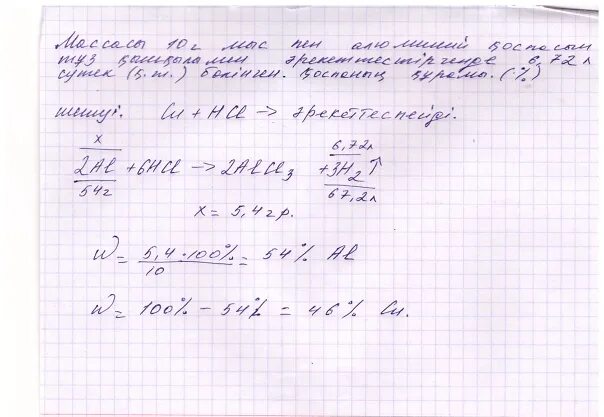 Массасы 10г мыс пен алюминий қоспасын
тұз қышқылымен әрекеттестіргенде 6,72л
сутек (қ.т.) бөлінген. Қоспаның құрамы. (%)
шешуі. Cu + HCl → әрекеттеспейді.
x 6,72л
2Al + 6HCl → 2AlCl3 + 3H2 ↑
54г 67,2л
x = 5,4гр.
W = 5,4 · 100% / 10 = 54% Al
W = 100% – 54% = 46% Cu.